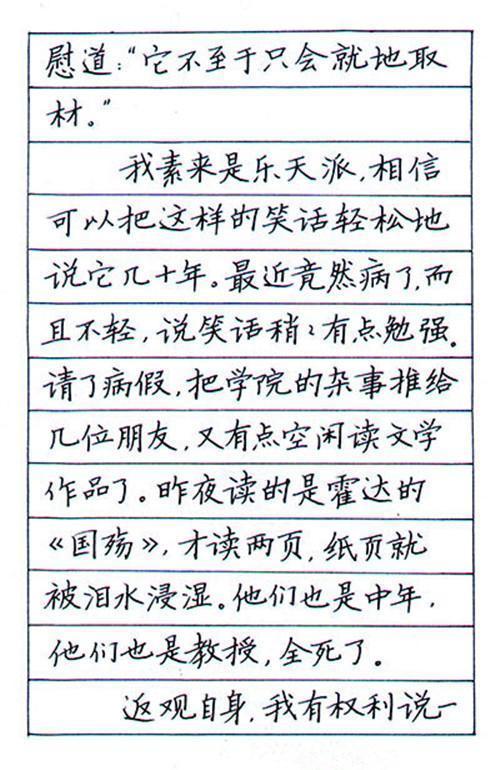 慰道：“它不至于只会就地取
材。”
我素来是乐天派，相信
可以把这样的笑话轻松地
说它几十年。最近竟然病了，而
且不轻，说笑话稍々有点勉强。
请了病假，把学院的杂事推给
几位朋友，又有点空闲读文学
作品了。昨夜读的是霍达的
《国殇》，才读两页，纸页就
被泪水浸湿。他们也是中年，
他们也是教授，全死了。
返观自身，我有权利说一